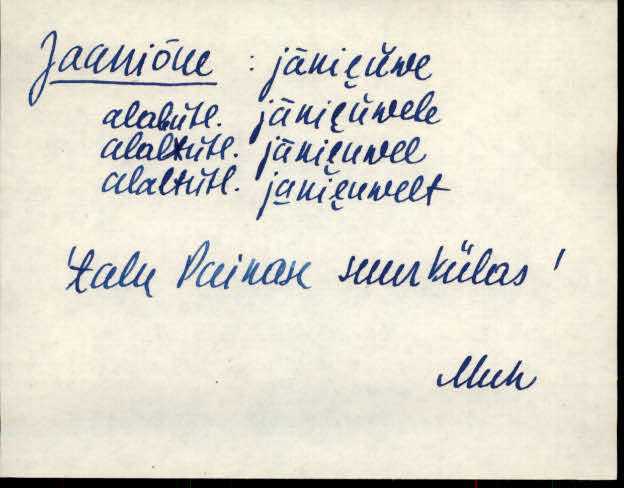 Jaaniõue : jāni̮e̮ŭwe
alaleütl. jāni̮e̮ŭwele
alaltütl. jāni̮e̮uwel
alaltütl. ja̮ni̮e̮uwelt
'talu Painase suurkülas'
Muh